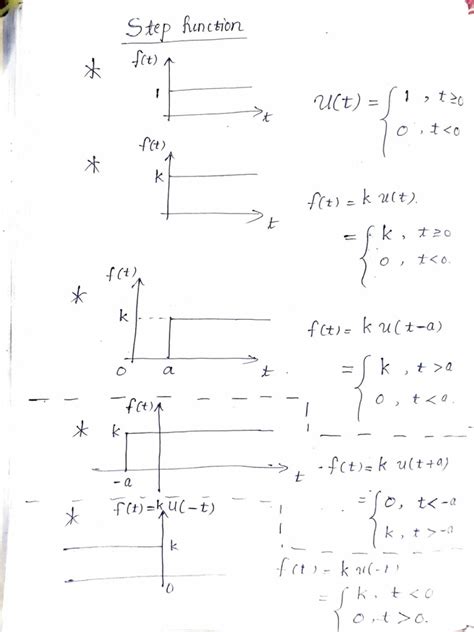 Step function
* f(t)
1
t
u(t) = { 1 , t≥0
0 , t<0
* f(t)
k
t
f(t) = k u(t).
= { k , t≥0
0 , t<0.
* f(t)
k
0 a t
f(t) = k u(t-a)
= { k , t>a
0 , t<a.
* f(t)
k
-a t
f(t) = k u(t+a)
= { 0, t<-a
k, t>-a
* f(t)=k u(-t)
k
0
f(t) = k u(-t)
= { k, t<0
0, t>0.